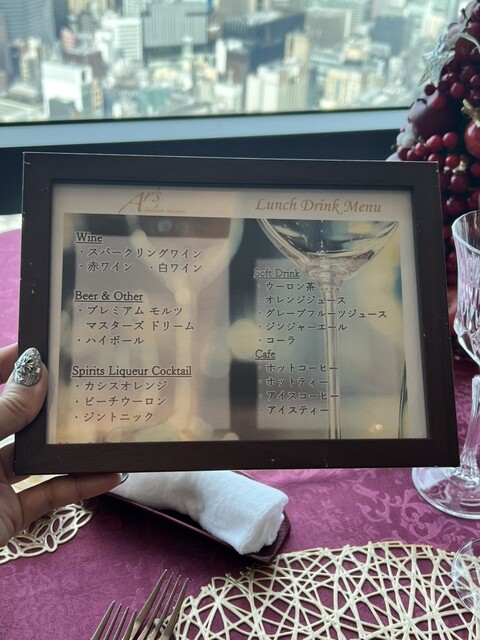 Ar's
Lunch Drink Menu
Wine
・スパークリングワイン
・赤ワイン ・白ワイン
Beer & Other
・プレミアム モルツ
マスターズ ドリーム
・ハイボール
Spirits Liqueur Cocktail
・カシスオレンジ
・ピーチウーロン
・ジントニック
Soft Drink
・ウーロン茶
・オレンジジュース
・グレープフルーツジュース
・ジンジャーエール
・コーラ
Cafe
・ホットコーヒー
・ホットティー
・アイスコーヒー
・アイスティー